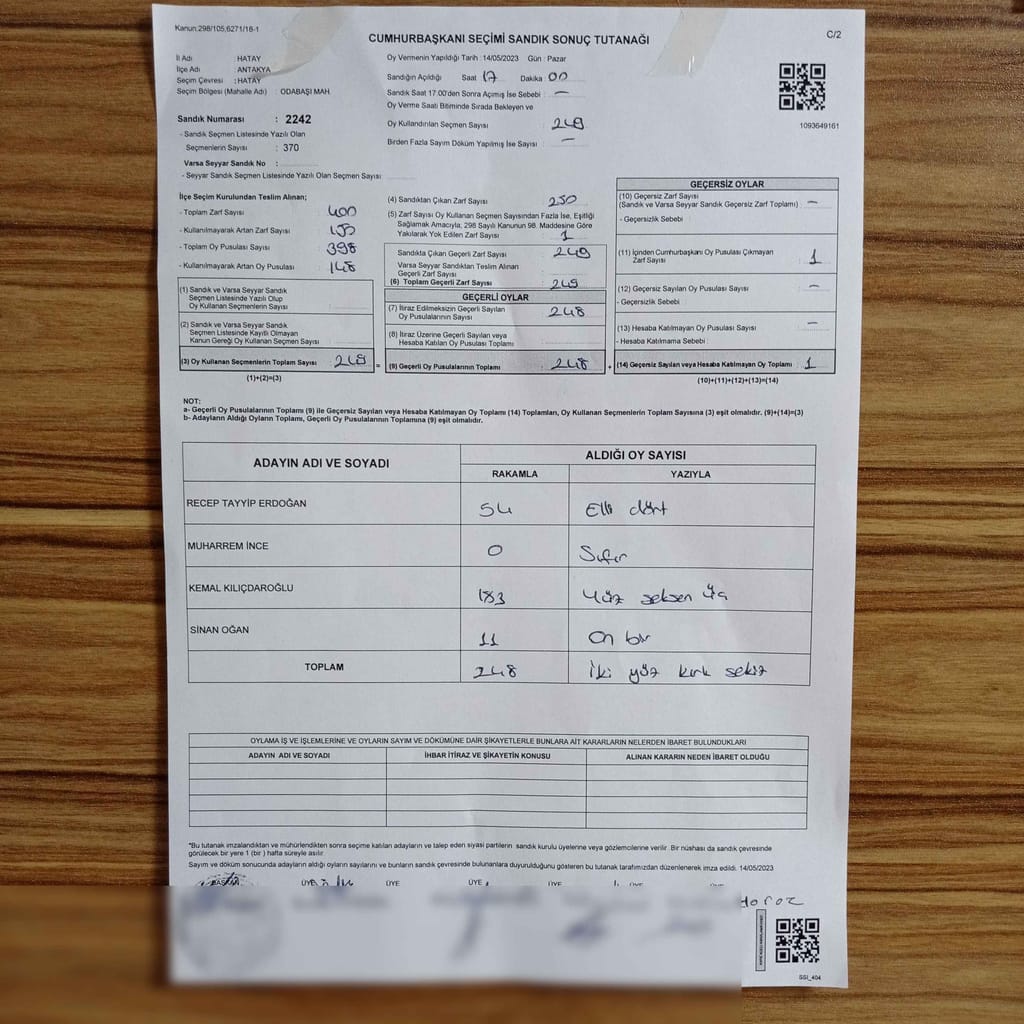 Kanun:298/105,6271/16-1
CUMHURBAŞKANI SEÇİMİ SANDIK SONUÇ TUTANAĞI
C/2
İl Adı : HATAY
İlçe Adı : ANTAKYA
Seçim Çevresi : HATAY
Seçim Bölgesi (Mahalle Adı) : ODABAŞI MAH.
Oy Vermenin Yapıldığı Tarih :14/05/2023 Gün : Pazar
Sandığın Açıldığı Saat 17 Dakika 00
Sandık Saat 17.00'den Sonra Açımış İse Sebebi : —
Oy Verme Saati Bitiminde Sırada Bekleyen ve
Oy Kullandırılan Seçmen Sayısı : 249
Birden Fazla Sayım Döküm Yapılmış İse Sayısı : —
1093649161
Sandık Numarası : 2242
- Sandık Seçmen Listesinde Yazılı Olan
Seçmenlerin Sayısı : 370
Varsa Seyyar Sandık No :
- Seyyar Sandık Seçmen Listesinde Yazılı Olan Seçmen Sayısı
İlçe Seçim Kurulundan Teslim Alınan;
- Toplam Zarf Sayısı : 400
- Kullanılmayarak Artan Zarf Sayısı : 150
- Toplam Oy Pusulası Sayısı : 398
- Kullanılmayarak Artan Oy Pusulası : 148
(1) Sandık ve Varsa Seyyar Sandık
Seçmen Listesinde Yazılı Olup
Oy Kullanan Seçmenlerin Sayısı
(2) Sandık ve Varsa Seyyar Sandık
Seçmen Listesinde Kayıtlı Olmayan
Kanun Gereği Oy Kullanan Seçmen Sayısı
(3) Oy Kullanan Seçmenlerin Toplam Sayısı : 249
(1)+(2)=(3)
(4) Sandıktan Çıkan Zarf Sayısı : 250
(5) Zarf Sayısı Oy Kullanan Seçmen Sayısından Fazla İse, Eşitliği
Sağlamak Amacıyla; 298 Sayılı Kanunun 98. Maddesine Göre
Yakılarak Yok Edilen Zarf Sayısı : 1
Sandıkta Çıkan Geçerli Zarf Sayısı : 249
Varsa Seyyar Sandıktan Teslim Alınan
Geçerli Zarf Sayısı
(6) Toplam Geçerli Zarf Sayısı : 249
GEÇERLİ OYLAR
(7) İtiraz Edilmeksizin Geçerli Sayılan
Oy Pusulalarının Sayısı : 248
(8) İtiraz Üzerine Geçerli Sayılan veya
Hesaba Katılan Oy Pusulası Toplamı
= (9) Geçerli Oy Pusulalarının Toplamı : 248 +
GEÇERSİZ OYLAR
(10) Geçersiz Zarf Sayısı
(Sandık ve Varsa Seyyar Sandık Geçersiz Zarf Toplamı) : —
- Geçersizlik Sebebi :
(11) İçinden Cumhurbaşkanı Oy Pusulası Çıkmayan
Zarf Sayısı : 1
(12) Geçersiz Sayılan Oy Pusulası Sayısı : —
- Geçersizlik Sebebi :
(13) Hesaba Katılmayan Oy Pusulası Sayısı : —
- Hesaba Katılmama Sebebi :
(14) Geçersiz Sayılan veya Hesaba Katılmayan Oy Toplamı : 1
(10)+(11)+(12)+(13)=(14)
NOT:
a- Geçerli Oy Pusulalarının Toplamı (9) ile Geçersiz Sayılan veya Hesaba Katılmayan Oy Toplamı (14) Toplamları, Oy Kullanan Seçmenlerin Toplam Sayısına (3) eşit olmalıdır. (9)+(14)=(3)
b- Adayların Aldığı Oyların Toplamı, Geçerli Oy Pusulalarının Toplamına (9) eşit olmalıdır.
ADAYIN ADI VE SOYADI
ALDIĞI OY SAYISI
RAKAMLA YAZIYLA
RECEP TAYYİP ERDOĞAN 54 Elli dört
MUHARREM İNCE 0 Sıfır
KEMAL KILIÇDAROĞLU 183 Yüz seksen üç
SİNAN OĞAN 11 On bir
TOPLAM 248 İki yüz kırk sekiz
OYLAMA İŞ VE İŞLEMLERİNE VE OYLARIN SAYIM VE DÖKÜMÜNE DAİR ŞİKAYETLERLE BUNLARA AİT KARARLARIN NELERDEN İBARET BULUNDUKLARI
ADAYIN ADI VE SOYADI İHBAR İTİRAZ VE ŞİKAYETİN KONUSU ALINAN KARARIN NEDEN İBARET OLDUĞU
*Bu tutanak imzalandıktan ve mühürlendikten sonra seçime katılan adayların ve talep eden siyasi partilerin sandık kurulu üyelerine veya gözlemcilerine verilir. Bir nüshası da sandık çevresinde
görülecek bir yere 1 (bir ) hafta süreyle asılır.
Sayım ve döküm sonucunda adayların aldığı oyların sayılarını ve bunların sandık çevresinde bulunanlara duyurulduğunu gösteren bu tutanak tarafımızdan düzenlenerek imza edildi. 14/05/2023
BAŞKAN ÜYE ÜYE ÜYE ÜYE ÜYE
Horoz
SSI_404